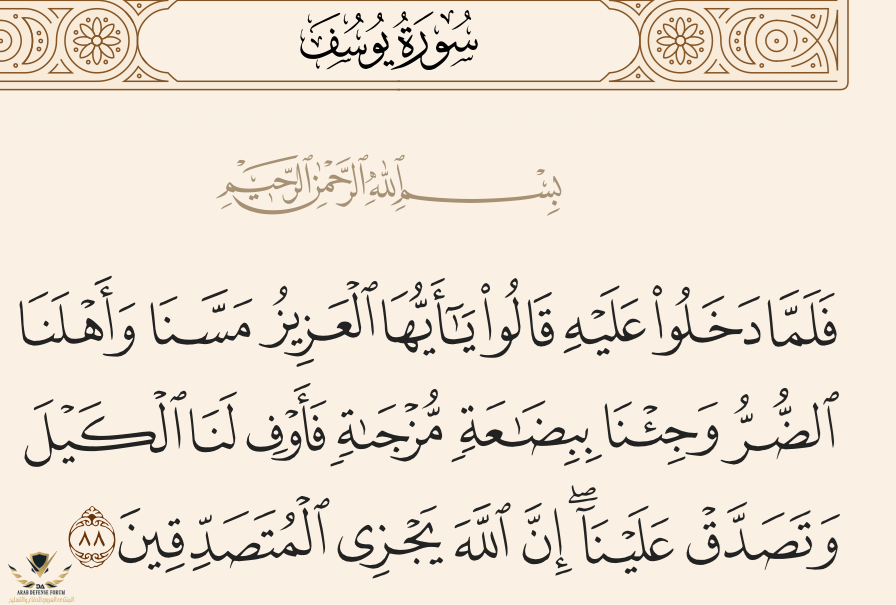 سُورَةُ يُوسُفَ
بِسْمِ اللَّهِ الرَّحْمَٰنِ الرَّحِيمِ
فَلَمَّا دَخَلُوا۟ عَلَيْهِ قَالُوا۟ يَـٰٓأَيُّهَا ٱلْعَزِيزُ مَسَّنَا وَأَهْلَنَا
ٱلضُّرُّ وَجِئْنَا بِبِضَـٰعَةٍ مُّزْجَىٰةٍ فَأَوْفِ لَنَا ٱلْكَيْلَ
وَتَصَدَّقْ عَلَيْنَآ ۖ إِنَّ ٱللَّهَ يَجْزِى ٱلْمُتَصَدِّقِينَ ٨٨
DA
ARAB DEFENSE FORUM